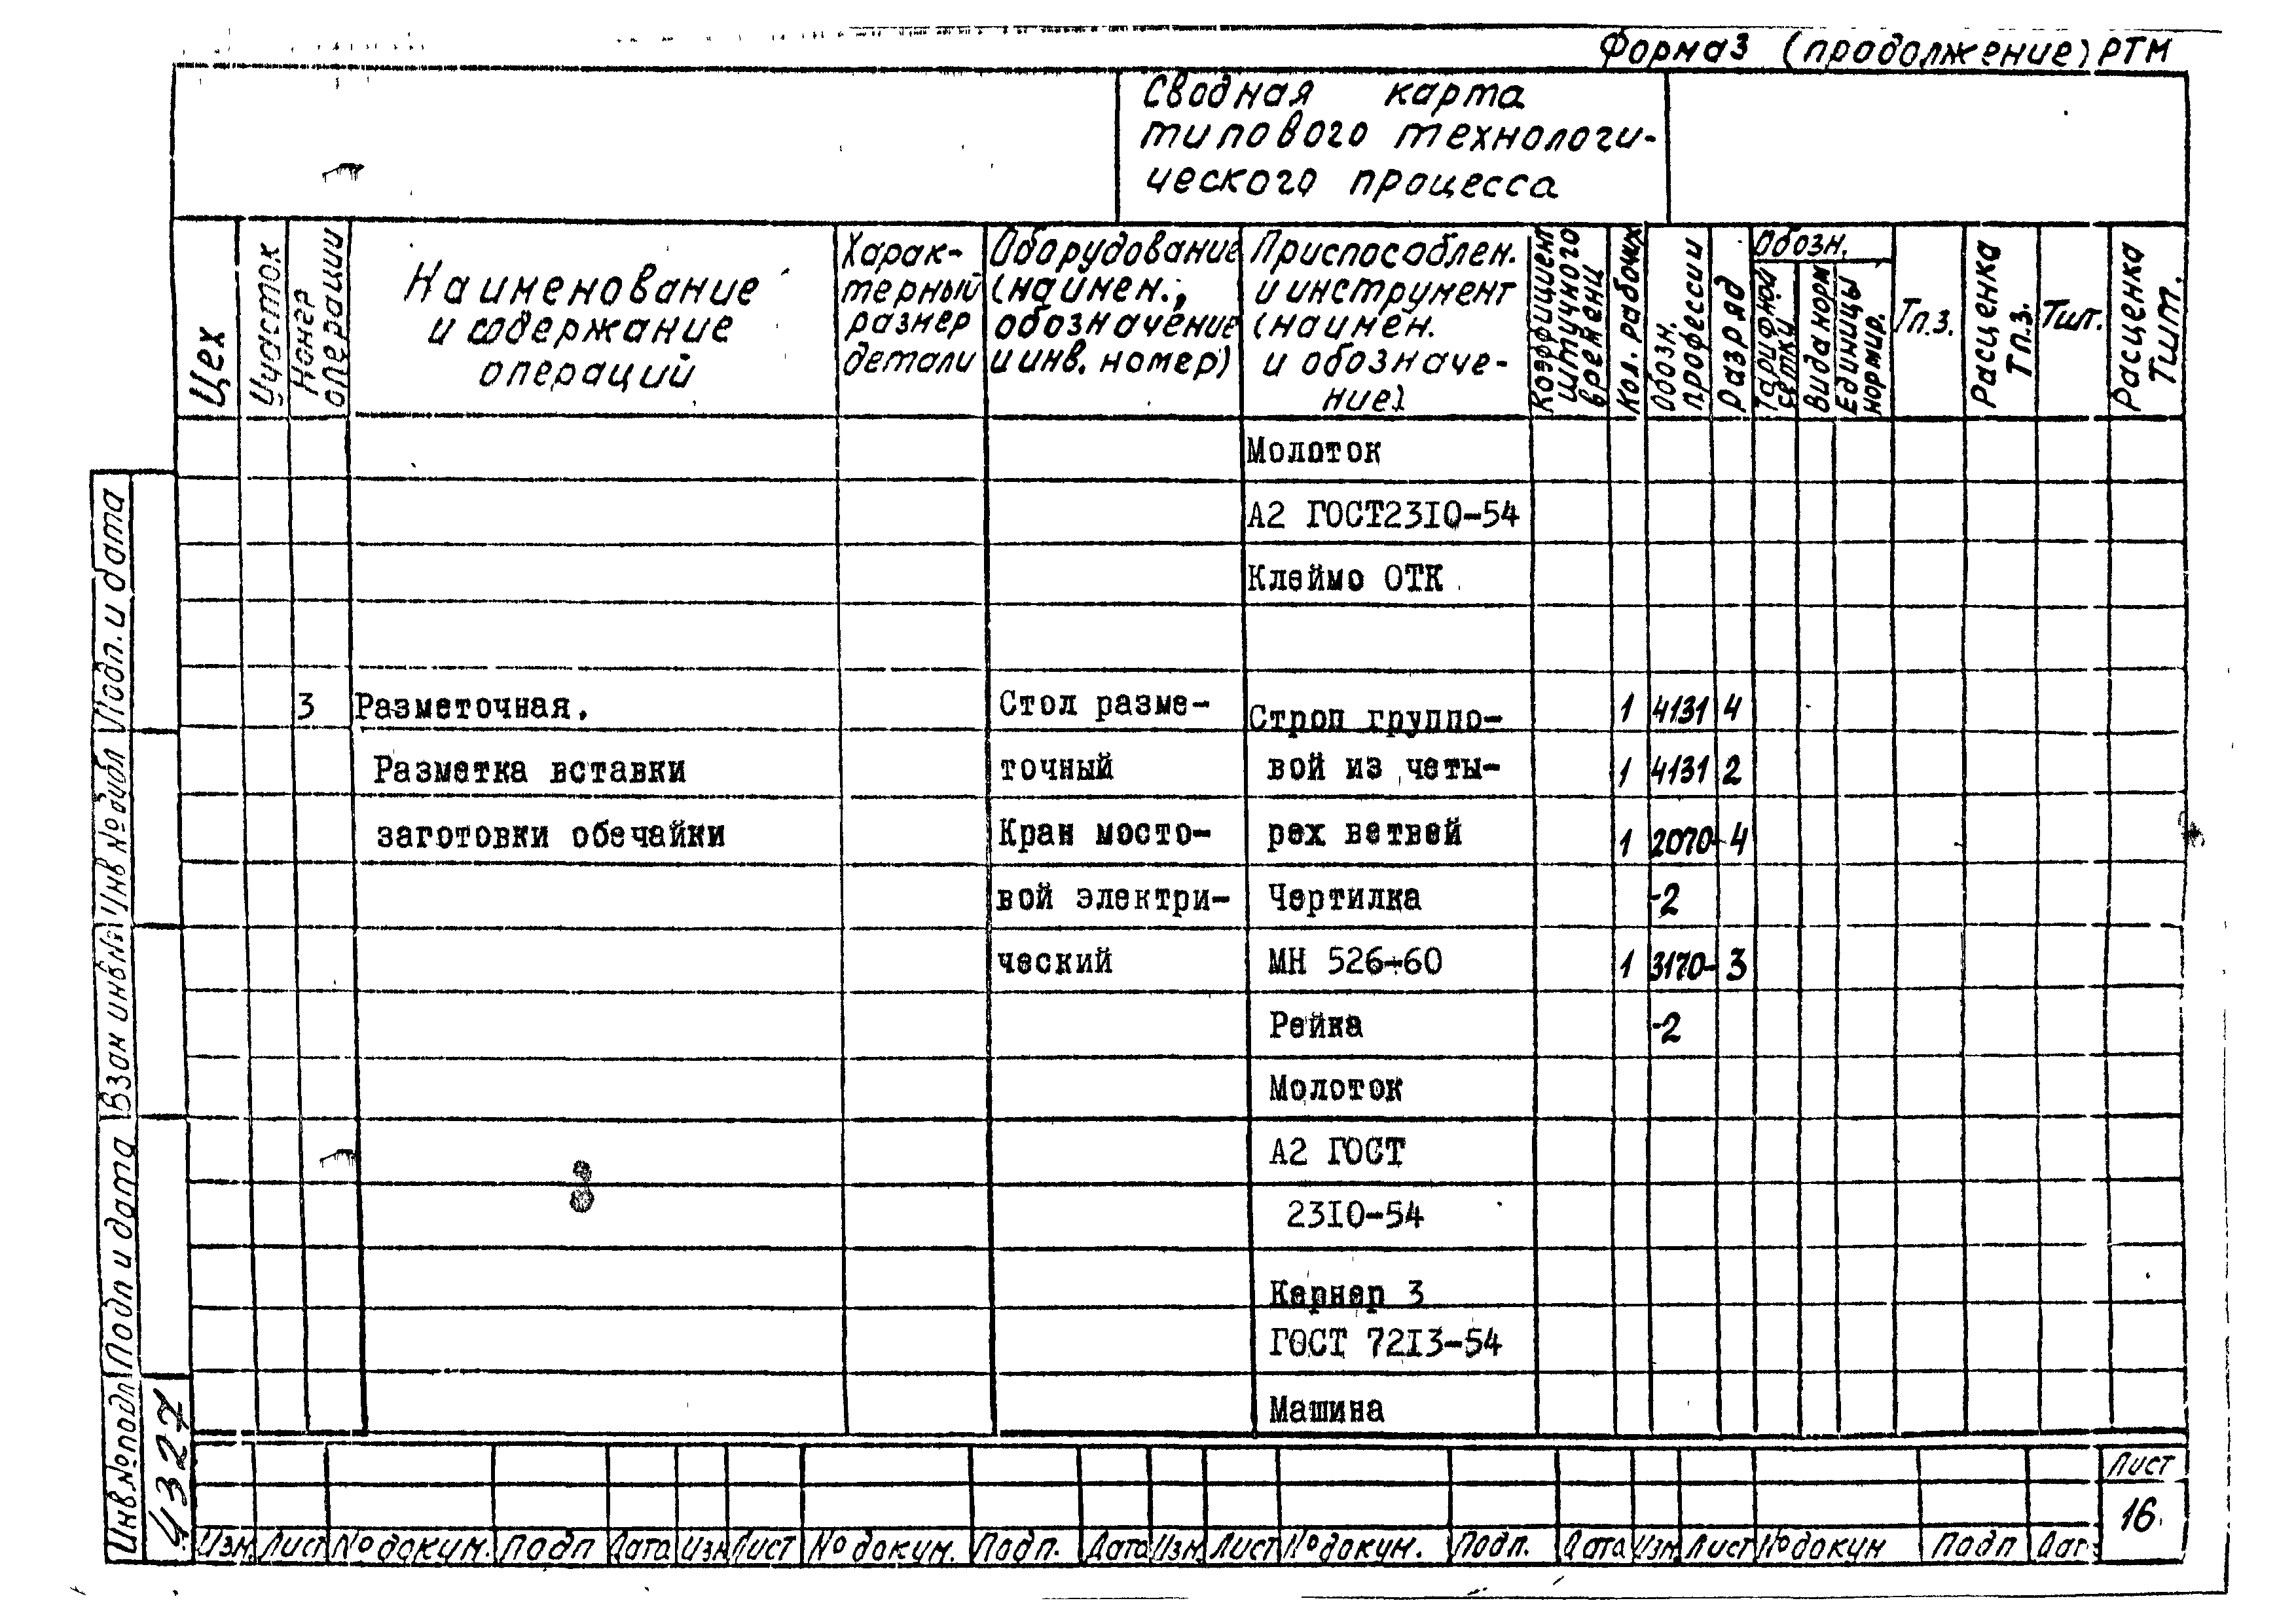 Форма 3 (продолжение) РТМ
Сводная карта
типового технологи-
ческого процесса
Цех
Участок
Номер
операции
Наименование
и содержание
операций
Харак-
терный
размер
детали
Оборудование
(наимен.,
обозначение
и инв. номер)
Приспособлен.
и инструмент
(наимен.
и обозначе-
ние)
Коэффициент
штучного
времени
Кол. рабочих
Обозн.
профессии
Разряд
Обозн.
Тарифной
сетки
Вида норм
Единицы
нормир.
Тп.з.
Расценка
Тп.з.
Тшт.
Расценка
Тшт.
Молоток
А2 ГОСТ2310-54
Клеймо ОТК
3 Разметочная. Стол разме- Строп группо- 1 4131 4
Разметка вставки точный вой из четы- 1 4131 2
заготовки обечайки Кран мосто- рех ветвей 1 2070- 4
вой электри- Чертилка -2
ческий МН 526-60 1 3170- 3
Рейка -2
Молоток
А2 ГОСТ
2310-54
Кернер 3
ГОСТ 7213-54
Машина
Подп. и дата
Инв № дубл
Взам инв №
Подп и дата
Инв № подл
4327
Лист
16
Изм. Лист № докум. Подп Дата Изм Лист № докум. Подп. Дата Изм. Лист № докум. Подп. Дата Изм Лист № докум Подп Дат